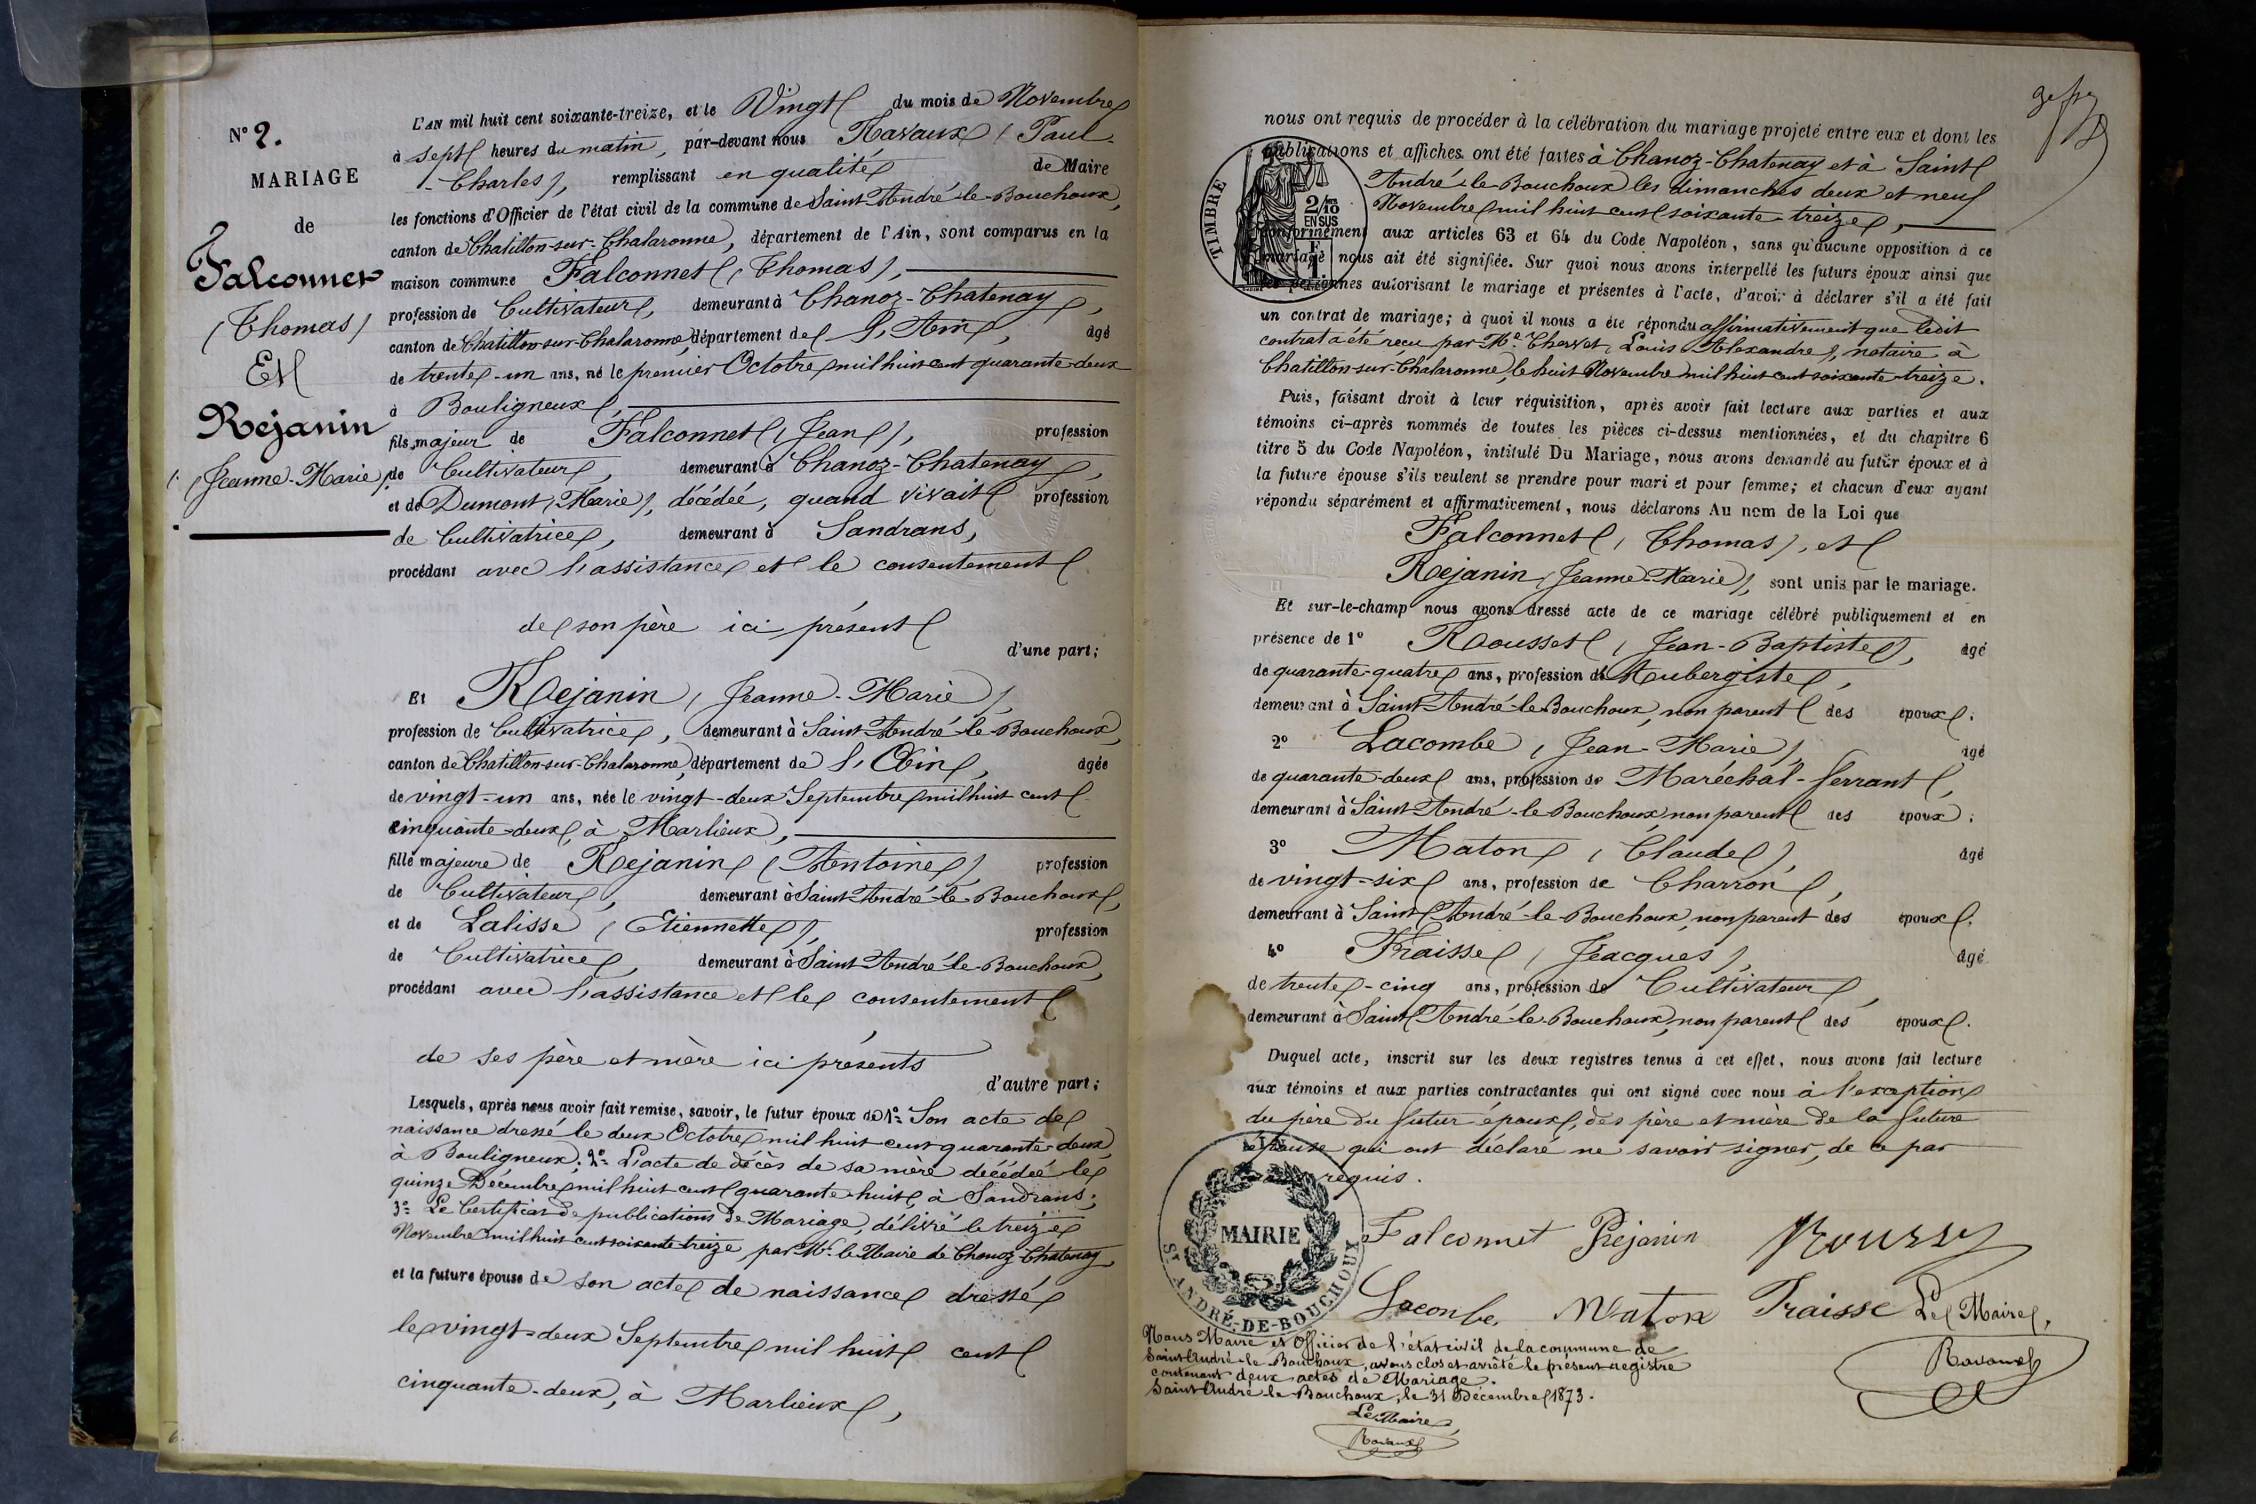 N° 2.
MARIAGE
de
Falconnet
(Thomas)
Et
Rejanin
(Jeanne-Marie)
L'AN mil huit cent soixante-treize, et le Vingt du mois de Novembre
à sept heures du matin, par-devant nous Ravaux (Paul-
-Charles), remplissant en qualité de Maire
les fonctions d'Officier de l'état civil de la commune de Saint-André-le-Bouchoux,
canton de Chatillon-sur-Chalaronne, département de l'Ain, sont comparus en la
maison commune Falconnet (Thomas),
profession de Cultivateur, demeurant à Chanoz-Chatenay,
canton de Chatillon-sur-Chalaronne, département de l'Ain, âgé
de trente-un ans, né le premier Octobre mil huit cent quarante-deux
à Bouligneux,
fils majeur de Falconnet (Jean), profession
de Cultivateur, demeurant à Chanoz-Chatenay,
et de Dumont (Marie), décédée, quand vivait profession
de Cultivatrice, demeurant à Sandrans,
procédant avec l'assistance et le consentement
de son père ici présent
d'une part;
Et Rejanin (Jeanne-Marie),
profession de Cultivatrice, demeurant à Saint-André-le-Bouchoux,
canton de Chatillon-sur-Chalaronne, département de l'Ain, âgée
de vingt-un ans, née le vingt-deux Septembre mil huit cent
cinquante-deux, à Marlieux,
fille majeure de Rejanin (Antoine), profession
de Cultivateur, demeurant à Saint-André-le-Bouchoux,
et de Lalisse (Etiennette), profession
de Cultivatrice, demeurant à Saint-André-le-Bouchoux,
procédant avec l'assistance et le consentement
de ses père et mère ici présents
d'autre part;
Lesquels, après nous avoir fait remise, savoir, le futur époux de 1° Son acte de
naissance dressé le deux Octobre mil huit cent quarante-deux,
à Bouligneux; 2° L'acte de décès de sa mère décédée le
quinze Décembre mil huit cent quarante-huit, à Sandrans;
3° Le Certificat de publications de Mariage, délivré le treize
Novembre mil huit cent soixante-treize, par Mr. le Maire de Chanoz-Chatenay
et la future épouse de son acte de naissance dressé
le vingt-deux Septembre mil huit cent
cinquante-deux, à Marlieux,
nous ont requis de procéder à la célébration du mariage projeté entre eux et dont les
publications et affiches ont été faites à Chanoz-Chatenay et à Saint
André-le-Bouchoux les dimanches deux et neuf
Novembre mil huit cent soixante-treize,
conformément aux articles 63 et 64 du Code Napoléon, sans qu'aucune opposition à ce
mariage nous ait été signifiée. Sur quoi nous avons interpellé les futurs époux ainsi que
les personnes autorisant le mariage et présentes à l'acte, d'avoir à déclarer s'il a été fait
un contrat de mariage; à quoi il nous a été répondu affirmativement que ledit
contrat a été reçu par Me. Louis Alexandre), notaire à
Chatillon-sur-Chalaronne, le huit Novembre mil huit cent soixante-treize.
TIMBRE
2/10 EN SUS
F. 1.
Puis, faisant droit à leur réquisition, après avoir fait lecture aux parties et aux
témoins ci-après nommés de toutes les pièces ci-dessus mentionnées, et du chapitre 6
titre 5 du Code Napoléon, intitulé Du Mariage, nous avons demandé au futur époux et à
la future épouse s'ils veulent se prendre pour mari et pour femme; et chacun d'eux ayant
répondu séparément et affirmativement, nous déclarons Au nom de la Loi que
Falconnet (Thomas), et
Rejanin (Jeanne-Marie), sont unis par le mariage.
Et sur-le-champ nous avons dressé acte de ce mariage célébré publiquement et en
présence de 1° Rousset (Jean-Baptiste), âgé
de quarante-quatre ans, profession d'Aubergiste,
demeurant à Saint-André-le-Bouchoux, non parent des époux;
2° Lacombe (Jean-Marie), âgé
de quarante-deux ans, profession de Maréchal-ferrant,
demeurant à Saint-André-le-Bouchoux, non parent des époux;
3° Maton (Claude), âgé
de vingt-six ans, profession de Charron,
demeurant à Saint-André-le-Bouchoux, non parent des époux;
4° Fraisse (Jacques), âgé
de trente-cinq ans, profession de Cultivateur,
demeurant à Saint-André-le-Bouchoux, non parent des époux.
Duquel acte, inscrit sur les deux registres tenus à cet effet, nous avons fait lecture
aux témoins et aux parties contractantes qui ont signé avec nous à l'exception
du père du futur époux, des père et mère de la future
épouse qui ont déclaré ne savoir signer, de ce par
requis.
Falconnet Rejanin Rousset
Lacombe Maton Fraisse Le Maire,
Ravaux
AIN
MAIRIE
St ANDRÉ-DE-BOUCHOUX
Nous Maire et Officier de l'état civil de la commune de
Saint-André-le-Bouchoux, avons clos et arrêté le présent registre
contenant deux actes de Mariage.
Saint-André-le-Bouchoux, le 31 Décembre 1873.
Le Maire,
Ravaux